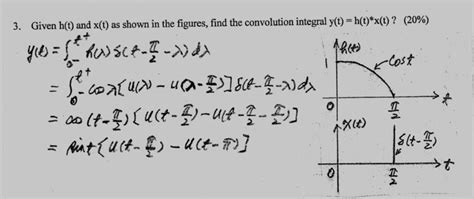 3. Given h(t) and x(t) as shown in the figures, find the convolution integral y(t) = h(t)*x(t) ? (20%)
y(t) = ∫_{0^-}^{t^+} h(λ) δ(t - π/2 - λ) dλ
= ∫_{0^-}^{t^+} cos λ [u(λ) - u(λ - π/2)] δ(t - π/2 - λ) dλ
= cos (t - π/2) [u(t - π/2) - u(t - π/2 - π/2)]
= sin t [u(t - π/2) - u(t - π)]
h(t)
cos t
1
0
π/2
t
x(t)
δ(t - π/2)
0
π/2
t